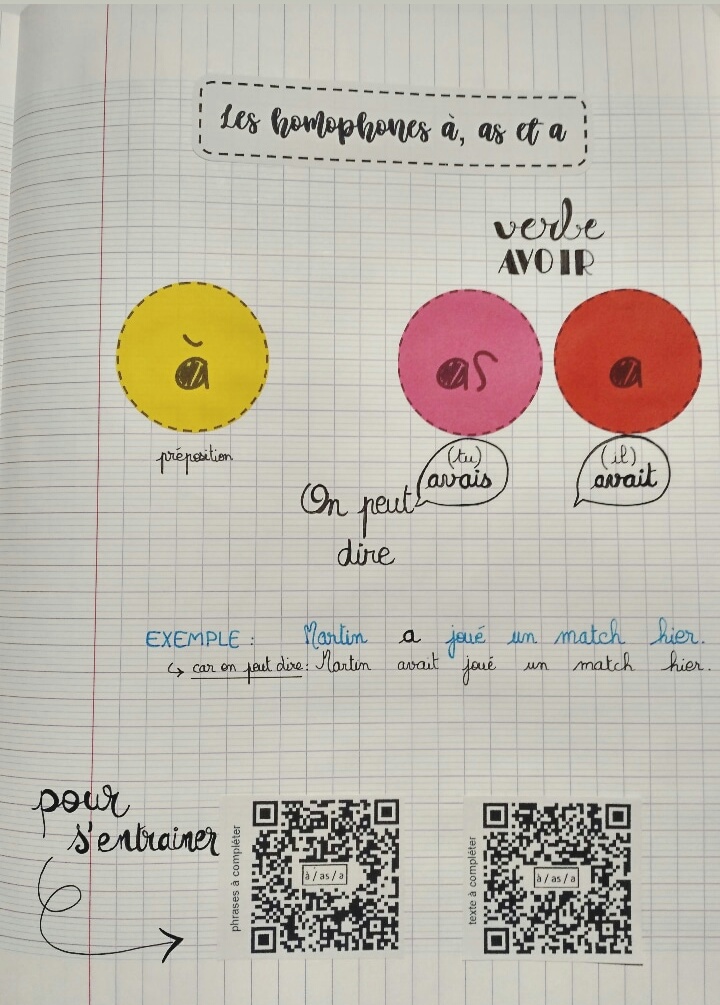 Les homophones à, as et a
verbe
AVOIR
à
as
a
préposition
(tu)
avais
(il)
avait
On peut
dire
EXEMPLE : Martin a joué un match hier.
↳ car on peut dire : Martin avait joué un match hier.
pour
s'entrainer
phrases à compléter
à / as / a
texte à compléter
à / as / a